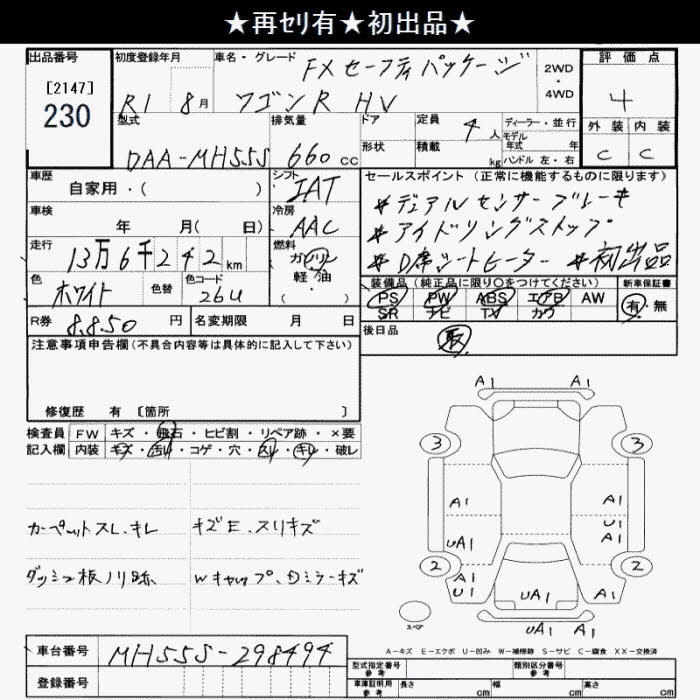 ★再セリ有★初出品★
出品番号 初度登録年月 車名・グレード FX セーフティパッケージ 2WD・4WD 評価点
[2147]
230
R1 8月 ワゴンR HV 4
型式 排気量 ドア 定員 4人 ディーラー・並行 外装 内装
形状 積載 kg モデル年式 年式
ハンドル 左・右
DAA-MH55S 660cc C C
車歴 自家用・( ) シフト IAT セールスポイント (正常に機能するものに限ります)
車検 年 月( 日) 冷房 AAC
#デュアルセンサーブレーキ
#アイドリングストップ
走行 13万6千242km 燃料 ガソリン 軽・油 #D席シートヒーター #初出品
色 ホワイト 色替 色コード 26U 装備品(純正品に限り○をつけてください) 新車保証書
PS PW ABS エアB AW 有・無
SR ナビ TV カワ
R券 8,850円 名変期限 月 日 後日品 取
注意事項申告欄(不具合内容等は具体的に記入して下さい)
修復歴 有 [箇所 ]
検査員 FW キズ・飛石・ヒビ割・リペア跡・×要
記入欄 内装 キズ・汚れ・コゲ・穴・スレ・キレ・破レ
カーペットスレ、キレ キズE、スリキズ
ダッシュ板ノリ跡 Wキャップ、Dミラーキズ
A1 A1
3 3
A1 A1
U1
UA1 A1
2 2
A1 U1 UA1 A1 U1
スペア UA1 A1
A-キズ E-エクボ U-凹み W-補修跡 S-サビ C-腐食 XX-交換済
車台番号 MH55S-298494
登録番号
型式指定番号 参考 類別区分番号 参考
車庫証明用 参考 長さ cm 幅 cm 高さ cm